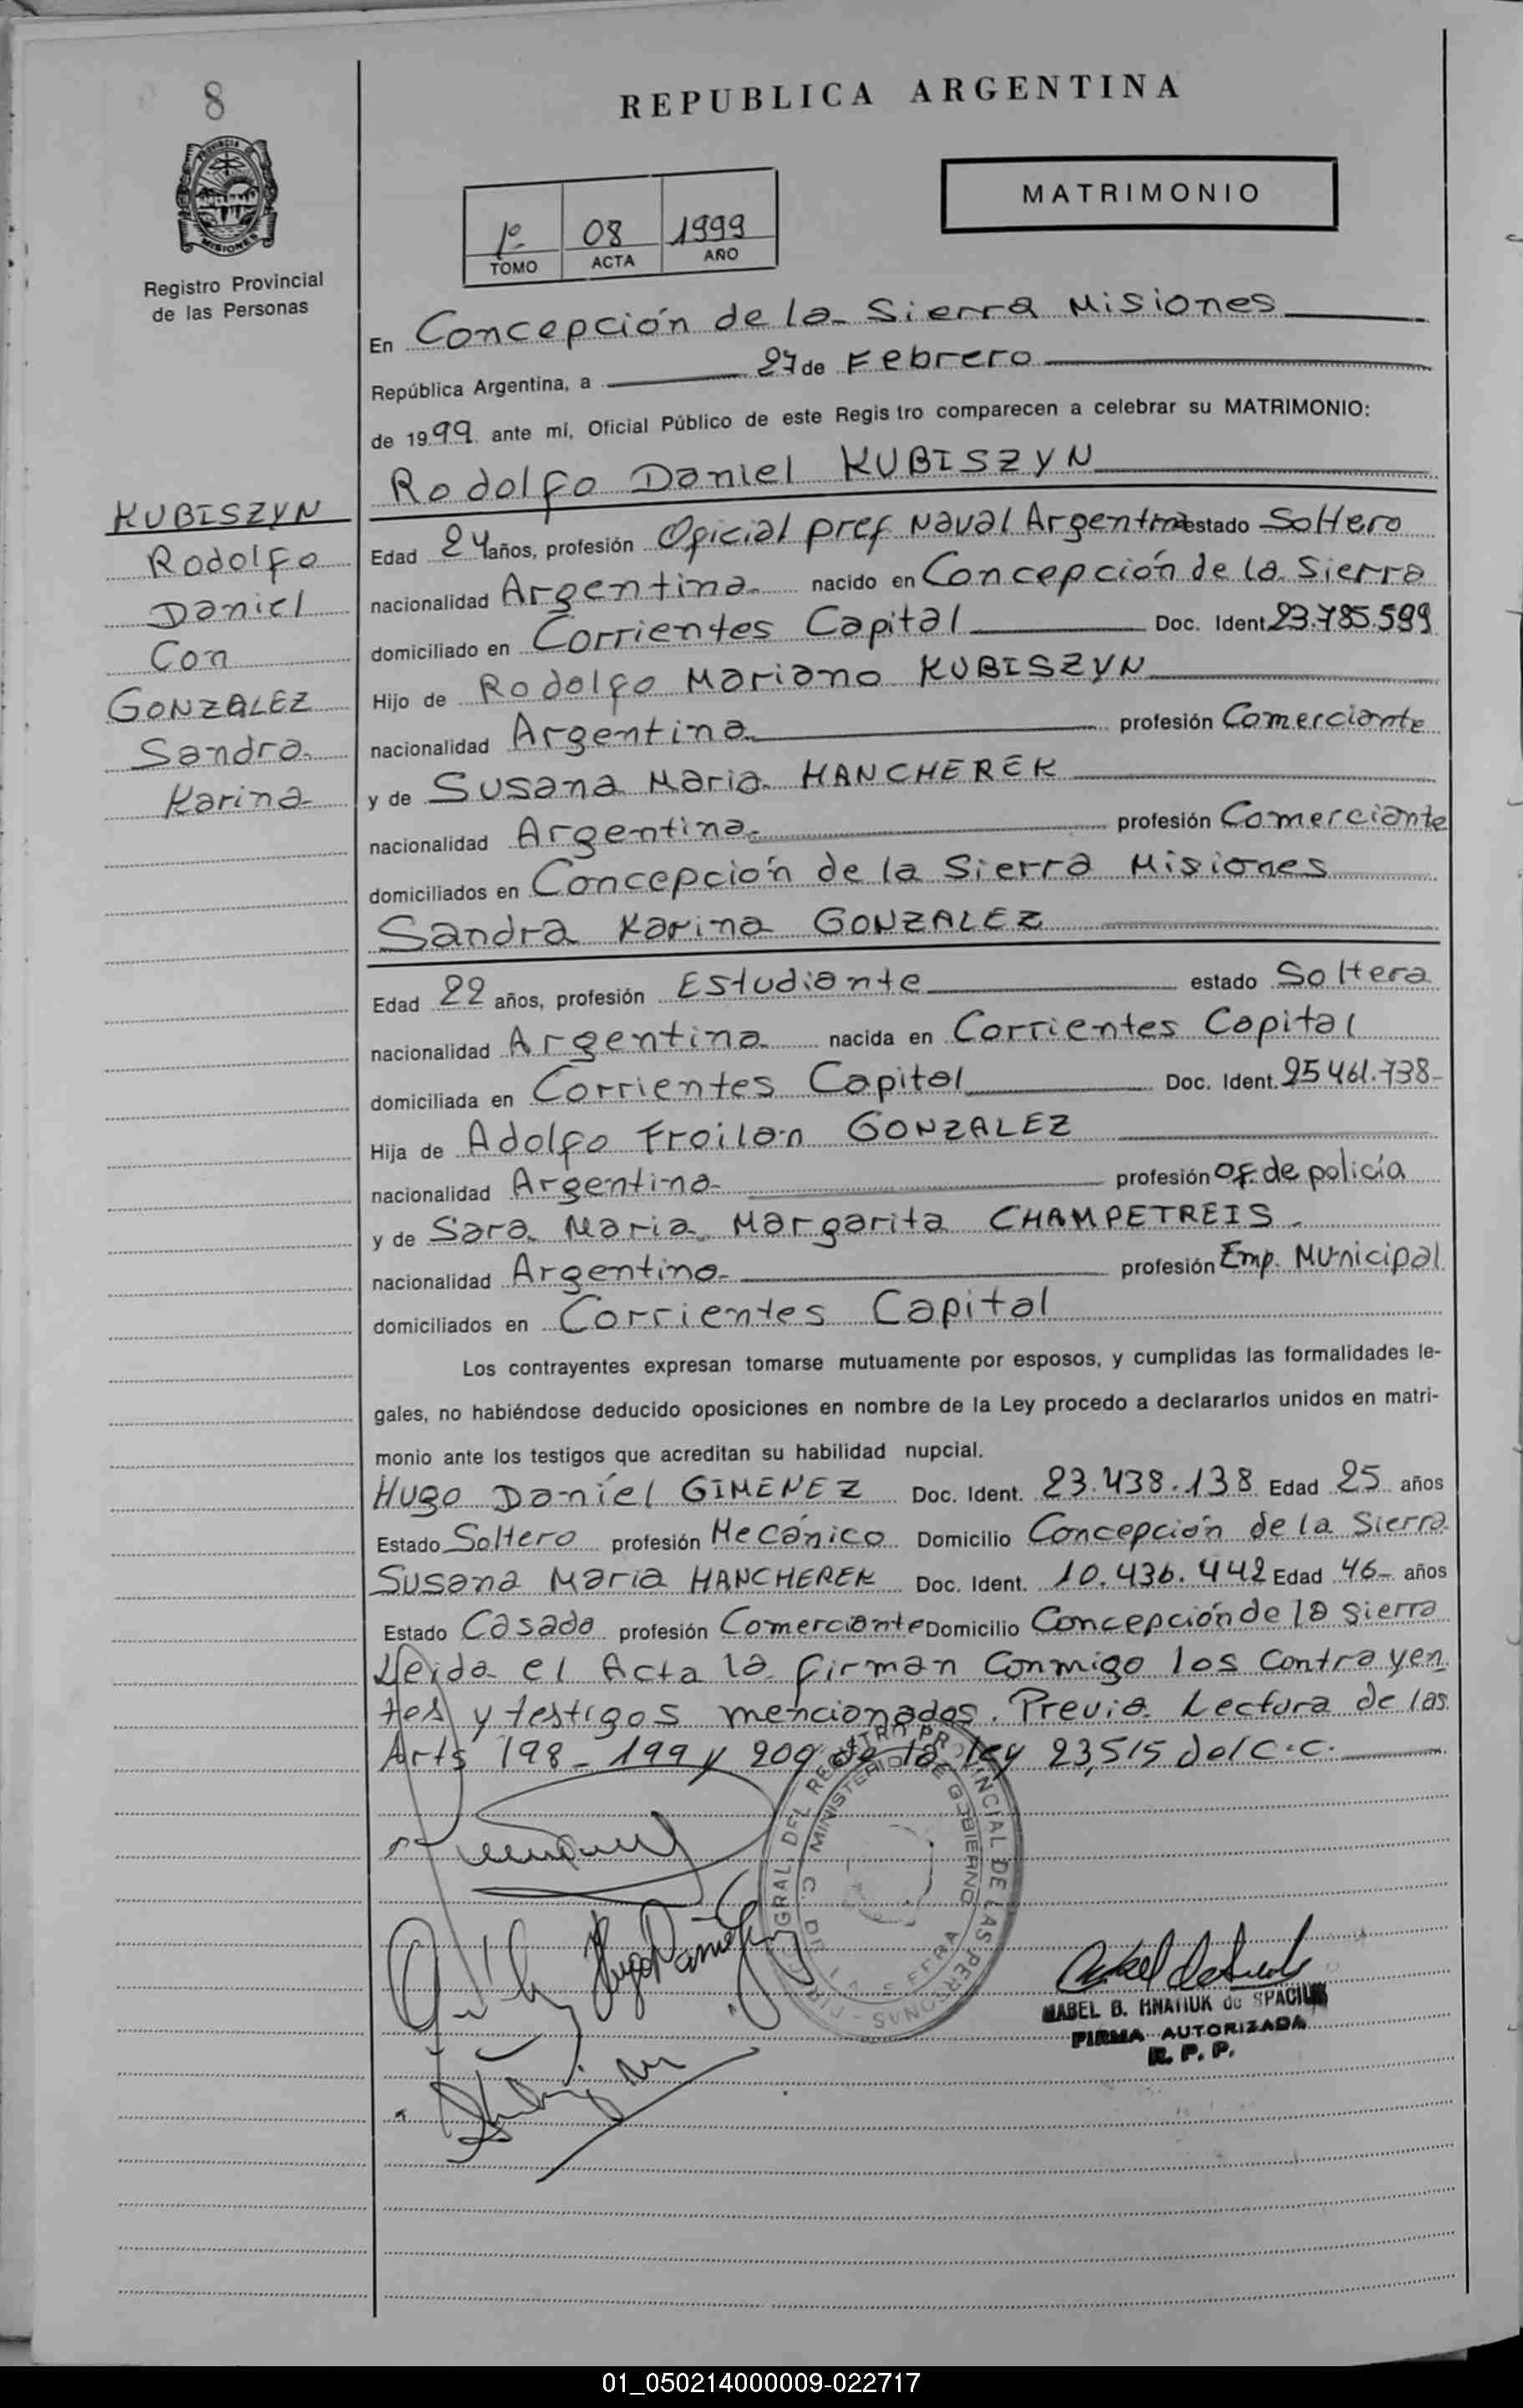 8
REPUBLICA ARGENTINA
MATRIMONIO
1º 08 1999
TOMO ACTA AÑO
PROVINCIA DE
MISIONES
Registro Provincial
de las Personas
En Concepción de la Sierra Misiones
República Argentina, a 27 de Febrero
de 1999 ante mí, Oficial Público de este Registro comparecen a celebrar su MATRIMONIO:
Rodolfo Daniel KUBISZYN
KUBISZYN
Rodolfo
Daniel
Con
GONZALEZ
Sandra
Karina
Edad 24 años, profesión Oficial pref Naval Argentina estado Soltero
nacionalidad Argentina nacido en Concepción de la Sierra
domiciliado en Corrientes Capital Doc. Ident. 23.785.599
Hijo de Rodolfo Mariano KUBISZYN
nacionalidad Argentina profesión Comerciante
y de Susana Maria HANCHEREK
nacionalidad Argentina profesión Comerciante
domiciliados en Concepción de la Sierra Misiones
Sandra Karina GONZALEZ
Edad 22 años, profesión Estudiante estado Soltera
nacionalidad Argentina nacida en Corrientes Capital
domiciliada en Corrientes Capital Doc. Ident. 25461.738
Hija de Adolfo Froilan GONZALEZ
nacionalidad Argentina profesión of. de policía
y de Sara Maria Margarita CHAMPETREIS.
nacionalidad Argentina profesión Emp. Municipal
domiciliados en Corrientes Capital
Los contrayentes expresan tomarse mutuamente por esposos, y cumplidas las formalidades le-
gales, no habiéndose deducido oposiciones en nombre de la Ley procedo a declararlos unidos en matri-
monio ante los testigos que acreditan su habilidad nupcial.
Hugo Daniel GIMENEZ Doc. Ident. 23.438.138 Edad 25 años
Estado Soltero profesión Mecánico Domicilio Concepción de la Sierra
Susana Maria HANCHEREK Doc. Ident. 10.436.442 Edad 46 años
Estado Casada profesión Comerciante Domicilio Concepción de la Sierra
Leida el Acta la firman conmigo los contrayen
tes y testigos mencionados. Previa Lectura de las
Arts 198 - 199 y 200 de la ley 23,515 del C.C.
GRAL. DEL REGISTRO PROVINCIAL DE LAS PERSONAS
MINISTERIO DE GOBIERNO
C. DE LA SIERRA
MABEL B. HNATIUK de SPACIUK
FIRMA AUTORIZADA
R. P. P.
01_050214000009-022717